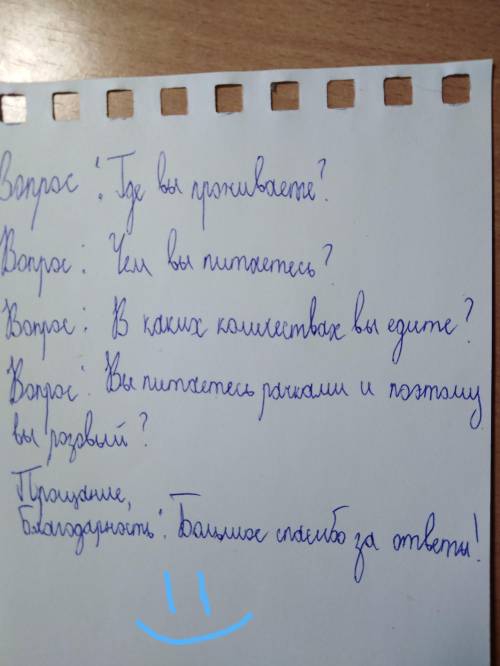 Вопрос: Где вы проживаете?
Вопрос: Чем вы питаетесь?
Вопрос: В каких количествах вы едите?
Вопрос: Вы питаетесь рачками и поэтому
вы розовый?
Прощание,
Благодарность: Большое спасибо за ответы!